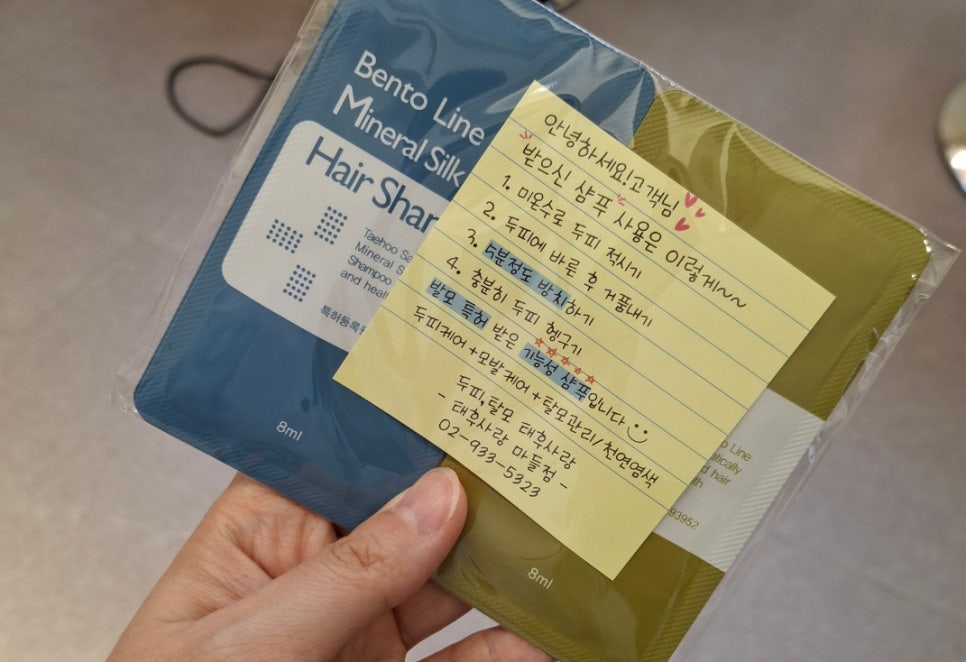 Bento Line
Mineral Silk
Hair Shar
Taehoo Sa
Mineral S
Shampoo
and heal
특허등록
8ml
안녕하세요!고객님
받으신 샴푸 사용은 이렇게~~
1. 미온수로 두피 적시기
2. 두피에 바른 후 거품내기
3. 5분정도 방치하기
4. 충분히 두피 헹구기
발모 특허 받은 기능성 샴푸입니다
두피케어+모발케어+탈모관리/천연염색
두피,탈모 태후사랑
- 태후사랑 마들점 -
02-933-5323
Line
atically
hair
93952
8ml